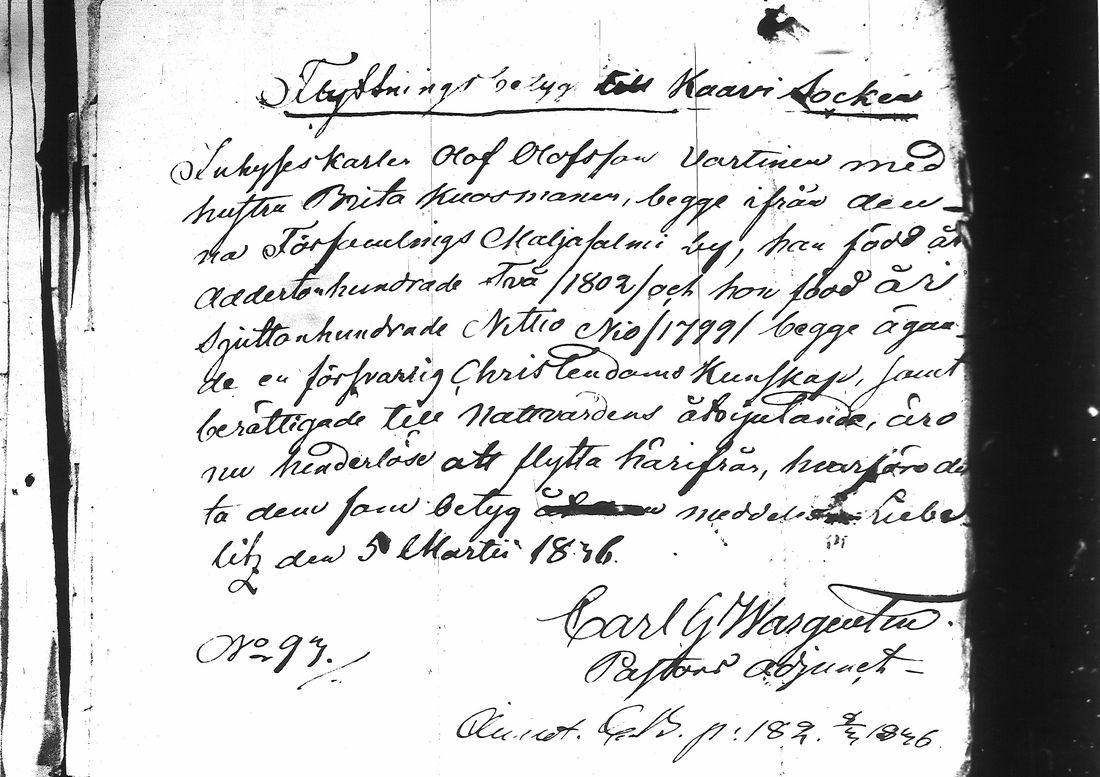 Flyttningsbetyg till Kaavi Socken
Inhyseskarlen Olof Olofsson Vartinen med
hustru Brita Kuosmanen, begge ifrån den-
na Församlings Maljasalmi by, han född år
Adertonhundrade Två /1802/ och hon född år
Sjuttonhundrade Nittio Nio /1799/ begge ägan-
de en försvarlig Christendoms Kunskap, samt
berättigade till Nattvardens åtnjutande, äro
nu hinderlöse att flytta härifrån, hvarföre det
ta dem som betyg meddelas Liebe
litz den 5 Martii 1846.
Carl G Wargentin.
Pastors adjunct-
No 93.
Annot. C.B. p: 182. 1846